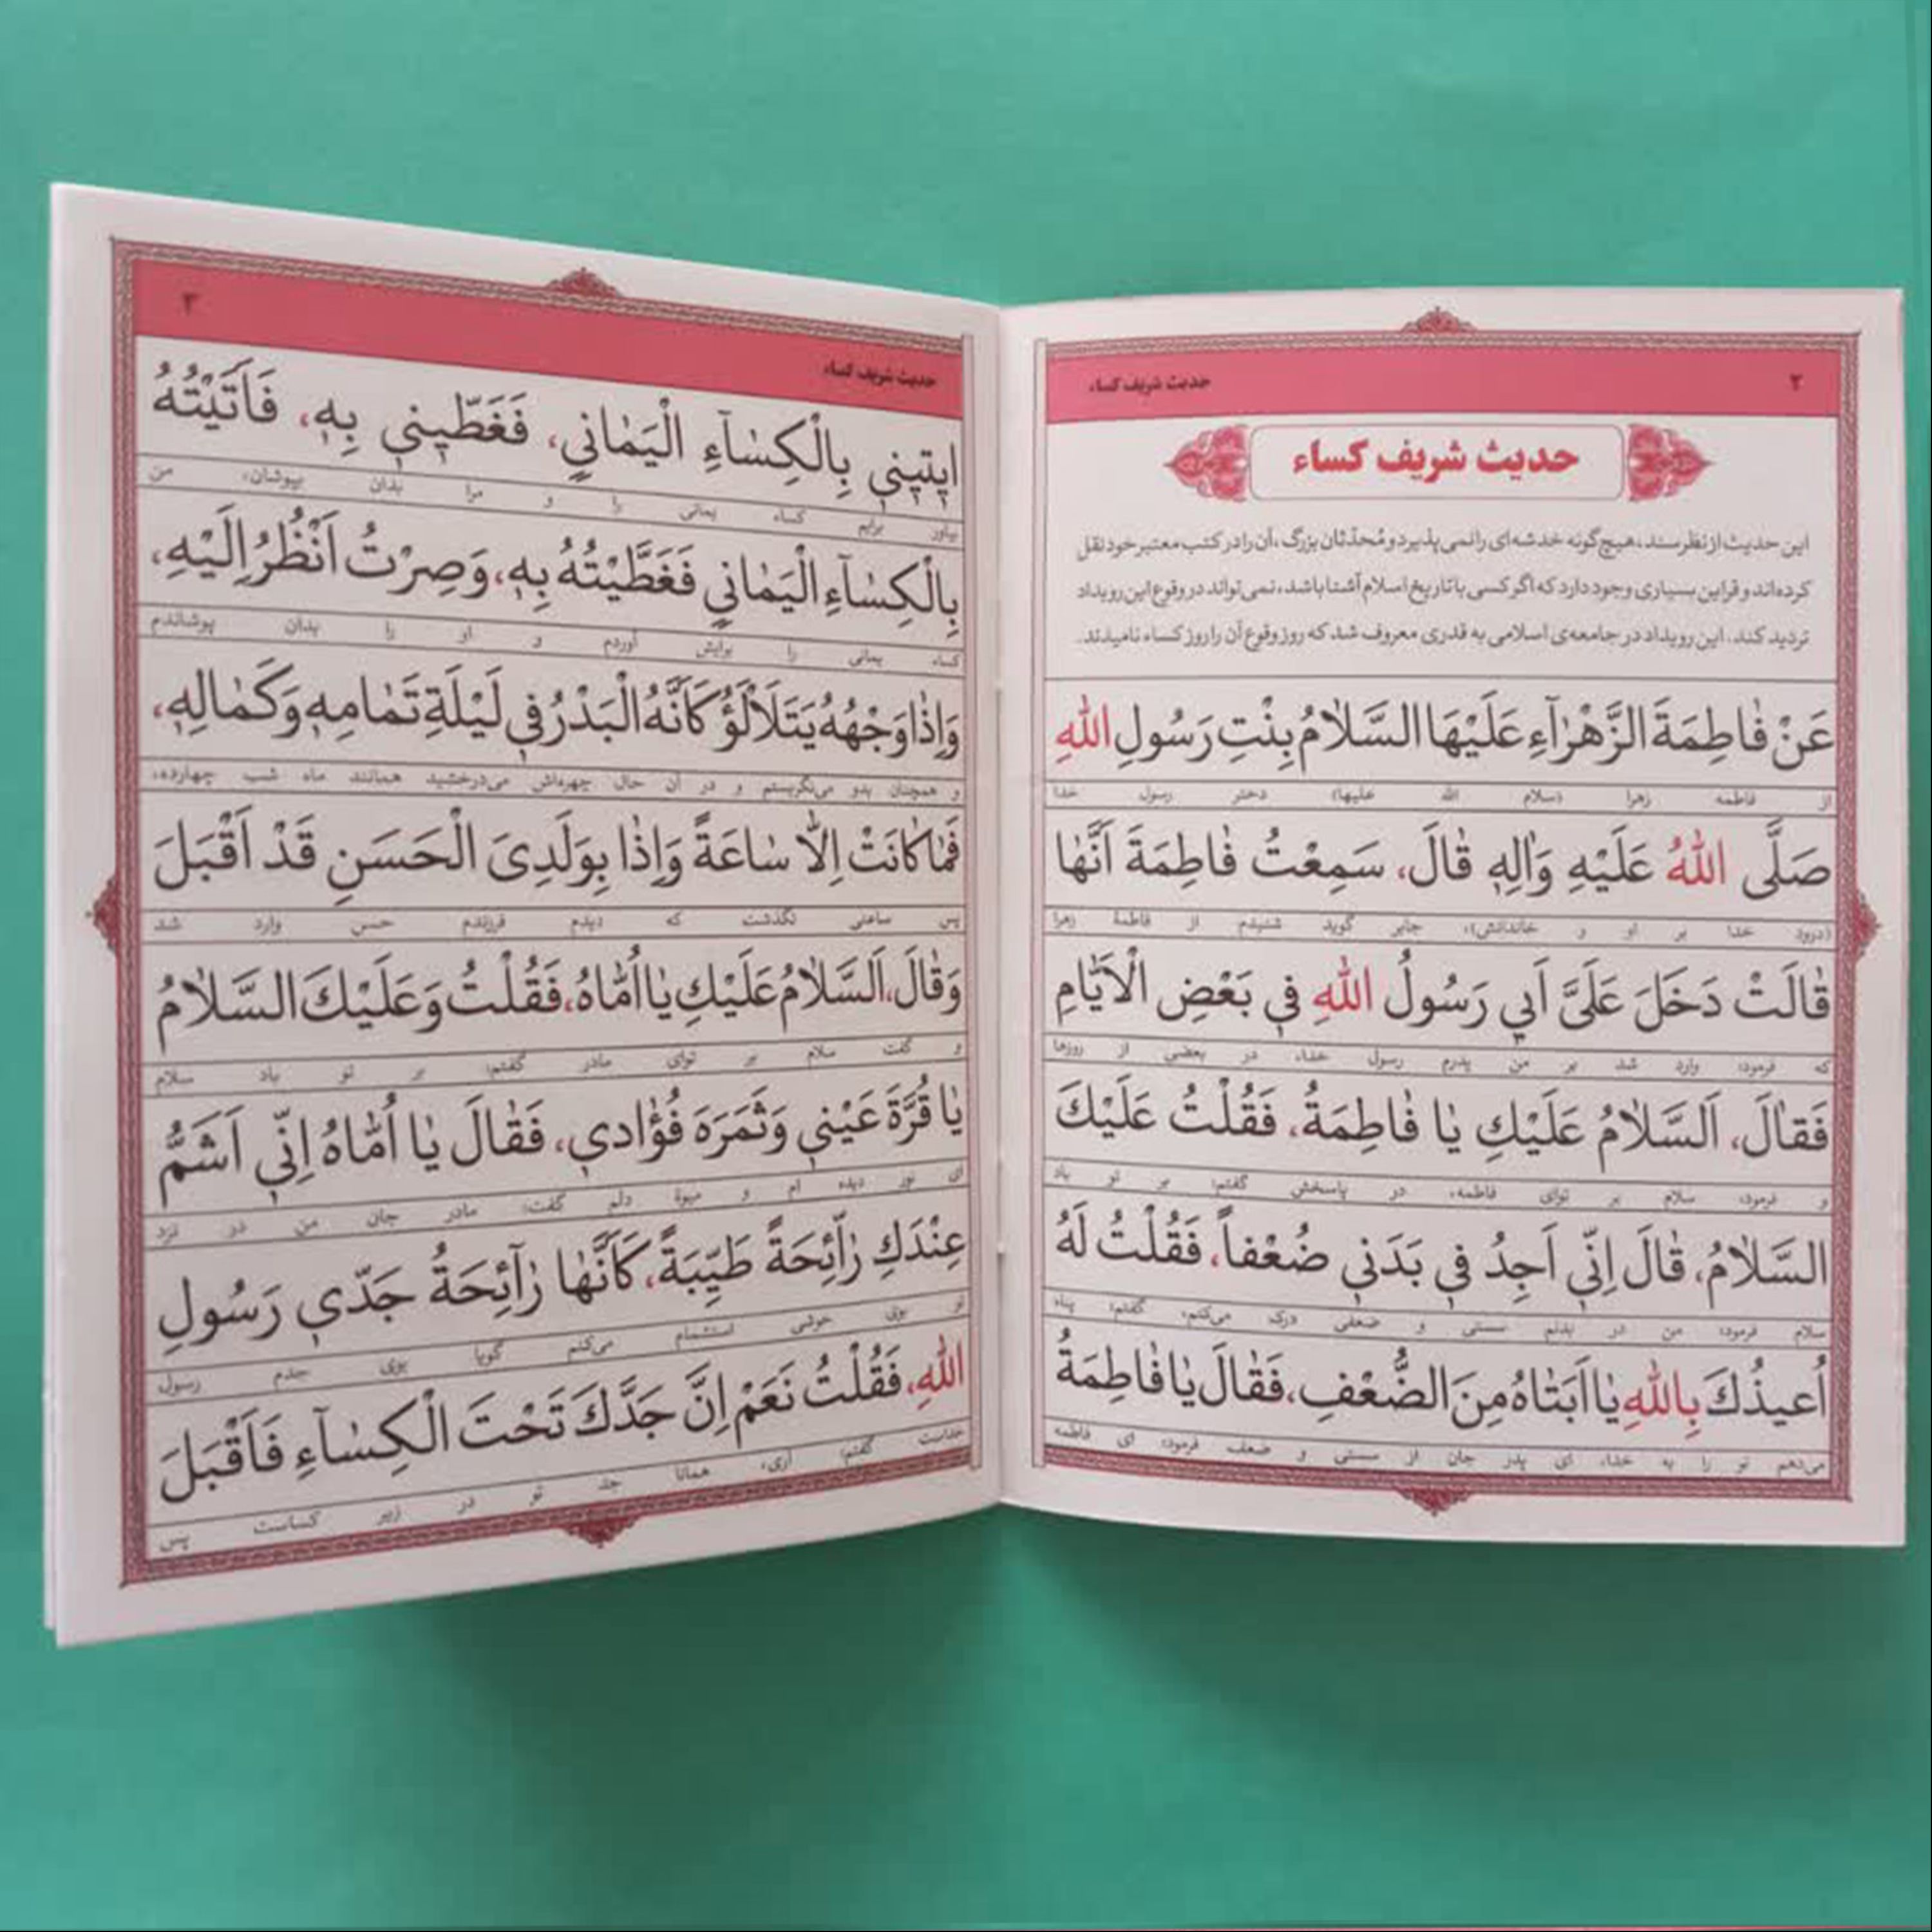 ۲
حدیث شریف کساء
حدیث شریف کساء
این حدیث از نظر سند، هیچ‌گونه خدشه‌ای را نمی‌پذیرد و مُحدّثان بزرگ، آن را در کتب معتبر خود نقل
کرده‌اند و قراین بسیاری وجود دارد که اگر کسی با تاریخ اسلام آشنا باشد، نمی‌تواند در وقوع این رویداد
تردید کند. این رویداد در جامعه‌ی اسلامی به قدری معروف شد که روز وقوع آن را روز کساء نامیدند.
عَنْ فٰاطِمَةَ الزَّهْرٰآءِ عَلَيْهَا السَّلٰامُ بِنْتِ رَسُولِ اللّٰهِ
از فاطمه زهرا (سلام الله علیها) دختر رسول خدا
صَلَّى اللّٰهُ عَلَيْهِ وَاٰلِهٖ قٰالَ، سَمِعْتُ فٰاطِمَةَ اَنَّهٰا
(درود خدا بر او و خاندانش)، جابر گوید شنیدم از فاطمهٔ زهرا
قٰالَتْ دَخَلَ عَلَىَّ اَبي رَسُولُ اللّٰهِ في بَعْضِ الْاَيّٰامِ
که فرمود: وارد شد بر من پدرم رسول خدا، در بعضی از روزها
فَقٰالَ، اَلسَّلٰامُ عَلَيْكِ يٰا فٰاطِمَةُ، فَقُلْتُ عَلَيْكَ
و فرمود: سلام بر توای فاطمه، در پاسخش گفتم: بر تو باد
السَّلٰامُ، قٰالَ اِنّي اَجِدُ في بَدَني ضُعْفاً، فَقُلْتُ لَهُ
سلام فرمود: من در بدنم سستی و ضعفی درک می‌کنم، گفتم: پناه
اُعيذُكَ بِاللّٰهِ يٰا اَبَتٰاهُ مِنَ الضُّعْفِ، فَقٰالَ يٰا فٰاطِمَةُ
می‌دهم تو را به خدا، ای پدر جان از سستی و ضعف فرمود: ای فاطمه
۳
حدیث شریف کساء
ايتيني بِالْكِسٰآءِ الْيَمٰاني، فَغَطّيني بِهٖ، فَاَتَيْتُهُ
بیاور برایم کساء یمانی را و مرا بدان بپوشان، من
بِالْكِسٰآءِ الْيَمٰاني فَغَطَّيْتُهُ بِهٖ، وَصِرْتُ اَنْظُرُ اِلَيْهِ،
کساء یمانی را برایش آوردم و او را بدان پوشاندم
وَاِذٰا وَجْهُهُ يَتَلَاْلَؤُ كَاَنَّهُ الْبَدْرُ في لَيْلَةِ تَمٰامِهٖ وَكَمٰالِهٖ،
و همچنان بدو می‌نگریستم و در آن حال چهره‌اش می‌درخشید همانند ماه شب چهارده،
فَمٰا كٰانَتْ اِلّٰا سٰاعَةً وَاِذٰا بِوَلَدِىَ الْحَسَنِ قَدْ اَقْبَلَ
پس ساعتی نگذشت که دیدم فرزندم حسن وارد شد
وَقٰالَ، اَلسَّلٰامُ عَلَيْكِ يٰا اُمّٰاهُ، فَقُلْتُ وَعَلَيْكَ السَّلٰامُ
و گفت سلام بر توای مادر گفتم: بر تو باد سلام
يٰا قُرَّةَ عَيْني وَثَمَرَةَ فُؤٰادي، فَقٰالَ يٰا اُمّٰاهُ اِنّي اَشَمُّ
ای نور دیده ام و میوهٔ دلم گفت: مادر جان من در نزد
عِنْدَكِ رٰآئِحَةً طَيِّبَةً، كَاَنَّهٰا رٰآئِحَةُ جَدّي رَسُولِ
تو بوی خوشی استشمام می‌کنم گویا بوی جدم رسول
اللّٰهِ، فَقُلْتُ نَعَمْ اِنَّ جَدَّكَ تَحْتَ الْكِسٰآءِ فَاَقْبَلَ
خداست گفتم: آری، همانا جد تو در زیر کساست پس